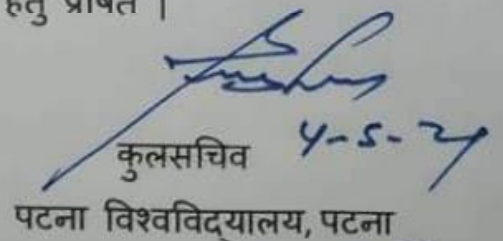 हेतु प्रेषित |
कुलसचिव 4-5-21
पटना विश्वविद्यालय, पटना